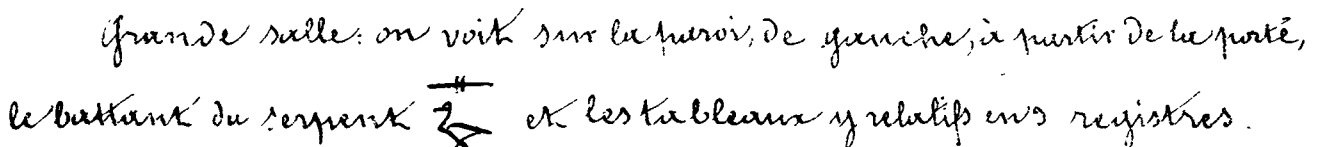 Grande salle: on voit sur la paroi, de gauche, à partir de la porte,
le battant du serpent et les tableaux y relatifs en 3 registres.